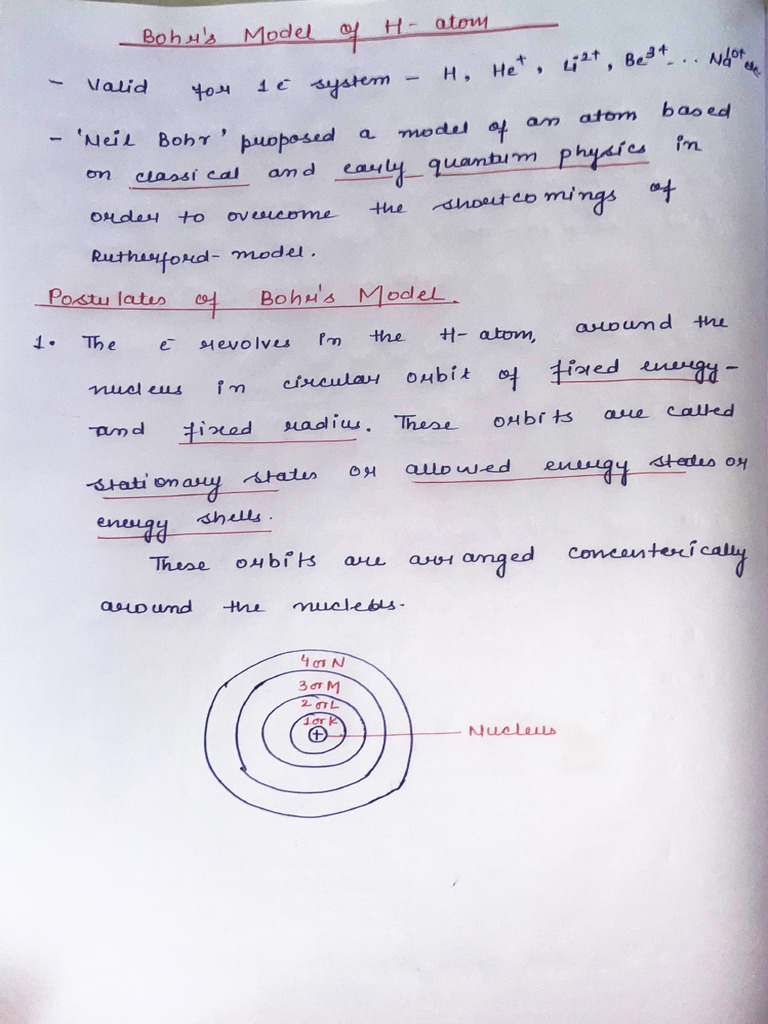 Bohr's Model of H- atom
- Valid for 1e⁻ system - H, He⁺, Li²⁺, Be³⁺ ... Na¹⁰⁺ etc
- 'Neil Bohr' proposed a model of an atom based
on classical and early quantum physics in
order to overcome the shortcomings of
Rutherford-model.
Postulates of Bohr's Model.
1. The e⁻ revolves in the H-atom, around the
nucleus in circular orbit of fixed energy-
and fixed radius. These orbits are called
stationary states or allowed energy states or
energy shells.
These orbits are arranged concenterically
around the nucleus.
4 or N
3 or M
2 or L
1 or K
+
Nucleus